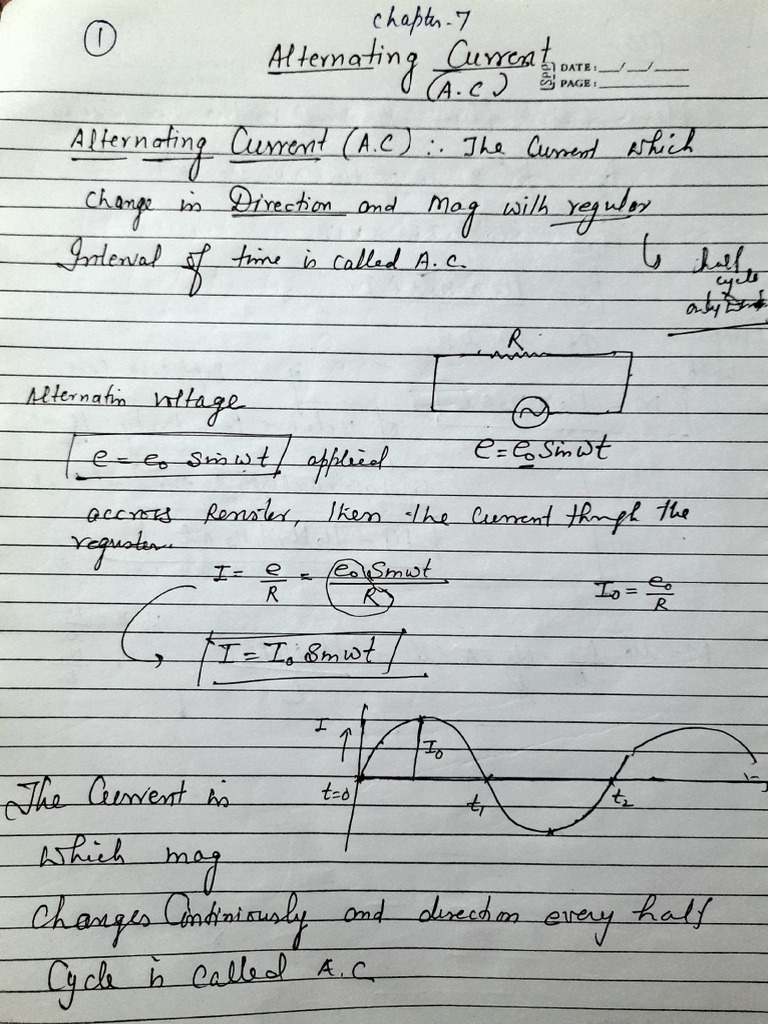 1
chapter-7
Alternating Current
(A.C)
DATE: __/__/__
PAGE:
Alternating Current (A.C) :. The Current which
change in Direction and Mag with regular
Interval of time is called A.C.
half
cycle
only
R
Alternatin voltage
e = e₀ sin ωt applied
e = e₀ Sin ωt
accross
then the current through the
I = e/R = e₀ Sin ωt/R
I₀ = e₀/R
I = I₀ Sin ωt
I
I₀
t=0
t₁
t₂
The Current in
which mag
changes Continiously and direction every half
Cycle is called A.C